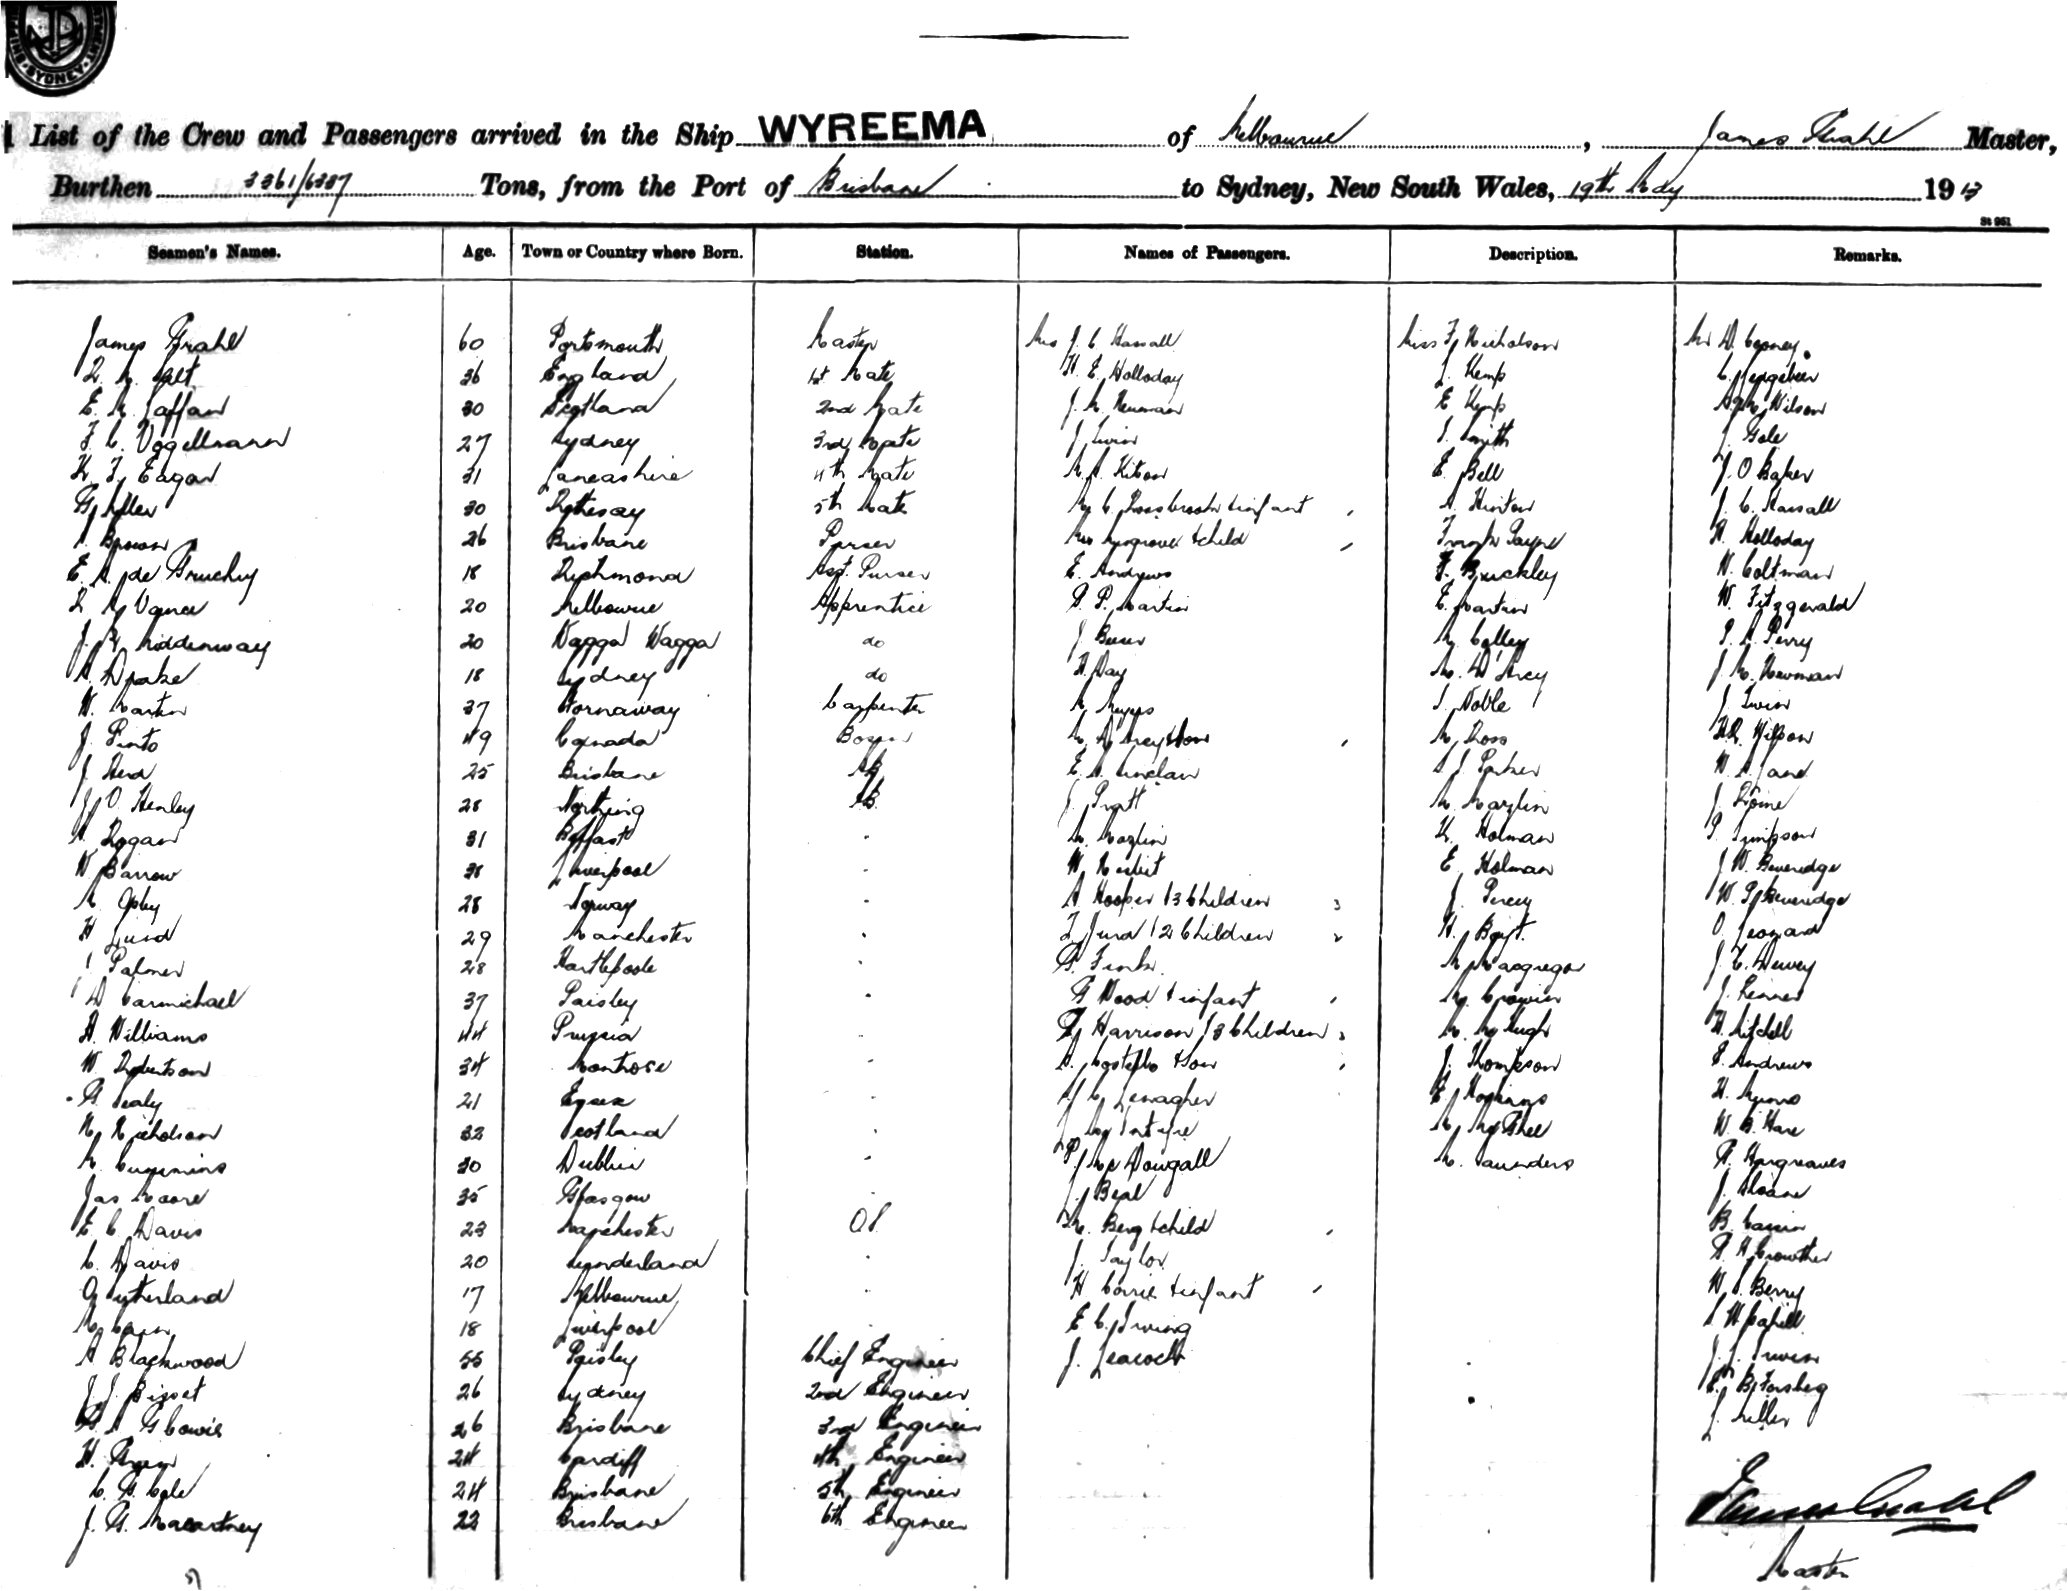 SYDNEY
List of the Crew and Passengers arrived in the Ship WYREEMA of Melbourne, James Grahl Master,
Burthen 3361/6387 Tons, from the Port of Brisbane to Sydney, New South Wales, 19th May 1913
St 951
Seamen's Names. Age. Town or Country where Born. Station. Names of Passengers. Description. Remarks.
James Grahl 60 Portsmouth Master Mrs J. C. Hassall Miss F Nicholson Mr D. Cooney
36 England 1st Mate H. E. Holloday J. Kemp C.
E. M. Jaffan 30 Scotland 2nd Mate J. M. Newman E Kemp Wilson
F. C. Vogellmann 27 Sydney 3rd Mate J Irwin S. Smith J Gale
K. F. Eagar 31 Lancashire 4th Mate M. A. Kitson E. Bell J. O Baker
G. Miller 30 Rothesay 5th Mate & infant A. Hinton J. C. Hassall
A Brown 26 Brisbane Purser Mrs Musgrove & child Payne H. Holloday
E. A. de Gruchy 18 Richmond Asst. Purser E. Andrews F. Buckley W. Coltman
R. A. Vance 20 Melbourne Apprentice G. P. Martin E. Martin W. Fitzgerald
J. R. Middenway 20 Wagga Wagga do J. M. Calley P. A. Perry
A. Drake 18 Sydney do H. Day M. D'Arcy J. M. Newman
W. Martin 37 Stornaway Carpenter M. Meyers S. Noble J. Irwin
J. Pinto 49 Canada Bosun M. A. & son M. Ross H.R. Wilson
J. Herd 25 Brisbane AB E. A. Sinclair A. J. Parker W. A. Lane
J. O. Henley 28 Worthing AB. J. Pratt M. Mazlin J. Rome
A. Logan 31 Belfast M. Mazlin K. Holman P. Simpson
W. Barrow 38 Liverpool W. Nesbit E. Holman J. W. Beveridge
M. Opley 28 Norway A Hooper / 3 Children 3 J. Percy W. P. Beveridge
H Lund 29 Manchester F Lund / 2 Children 2 H. Boyt. O. Leonard
J Palmer 28 Hartlepoole G. Finks M. Macgregor J. E. Dewey
D Carmichael 37 Paisley G Wood & infant M. Cronin J.
A. Williams 44 Prussia Harrison / 3 Children 3 M. McHugh H. Mitchell
W. Robertson 34 Montrose A. Costello & son J. Thompson E. Andrews
G Sealy 21 Essex J C Gallagher E. Hopkins H. Munro
N. Nicholson 32 Scotland J McIntyre M. McPhee W. B. Hare
M. Cummins 30 Dublin J. McDowgall M. Saunders R. Hargreaves
Jas Moore 35 Glasgow J. Beal J. Sloane
E C Davis 23 Manchester OS. M. Berg & child B. Cassin
C. Davis 20 Sunderland J. Taylor G. A. Crowther
G Sutherland 17 Melbourne H Corrie & infant W. C. Berry
M. Cain 18 Liverpool E C. Irving A W Cahill
A Blackwood 55 Paisley Chief Engineer J. Leacock J. J. Irwin
J. J. Bisset 26 Sydney 2nd Engineer E. B. Forsberg
G A G Cowie 26 Brisbane 3rd Engineer J. Miller
H. Green 24 Cardiff 4th Engineer
C. G. Cole 24 Brisbane 5th Engineer
J. G. Macartney 22 Brisbane 6th Engineer
James Grahl
Master